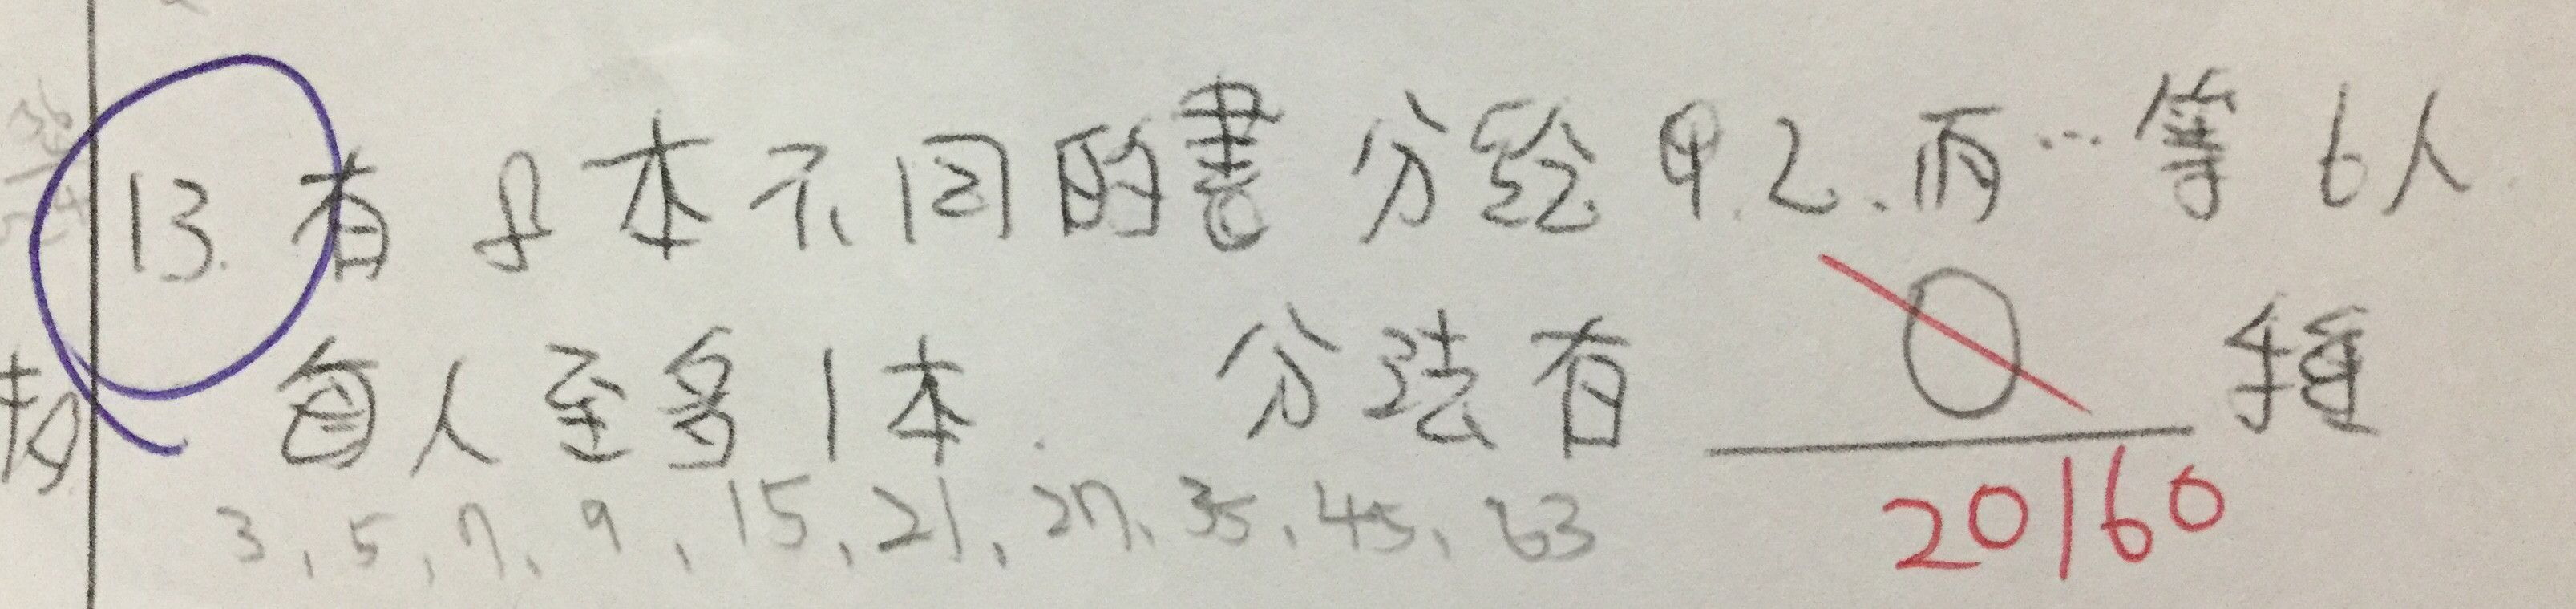 13. 有 8 本不同的書分給甲.乙.丙…等6人
每人至多1本. 分法有 0 種
20160
3、5、7、9、15、21、27、35、45、63